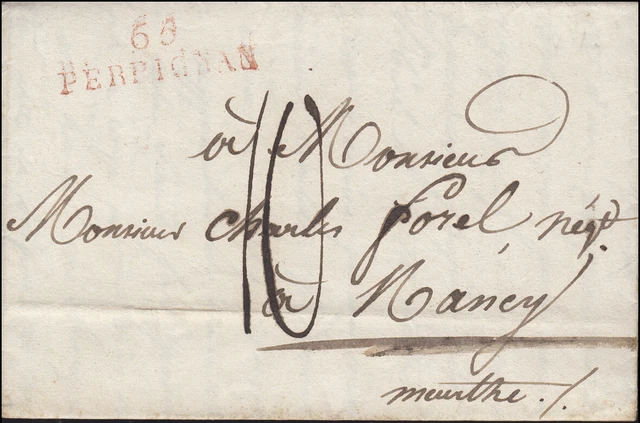 65
PERPIGNAN
à Monsieur
Monsieur Charles Forel, négt
10
à Nancy
meurthe ./.